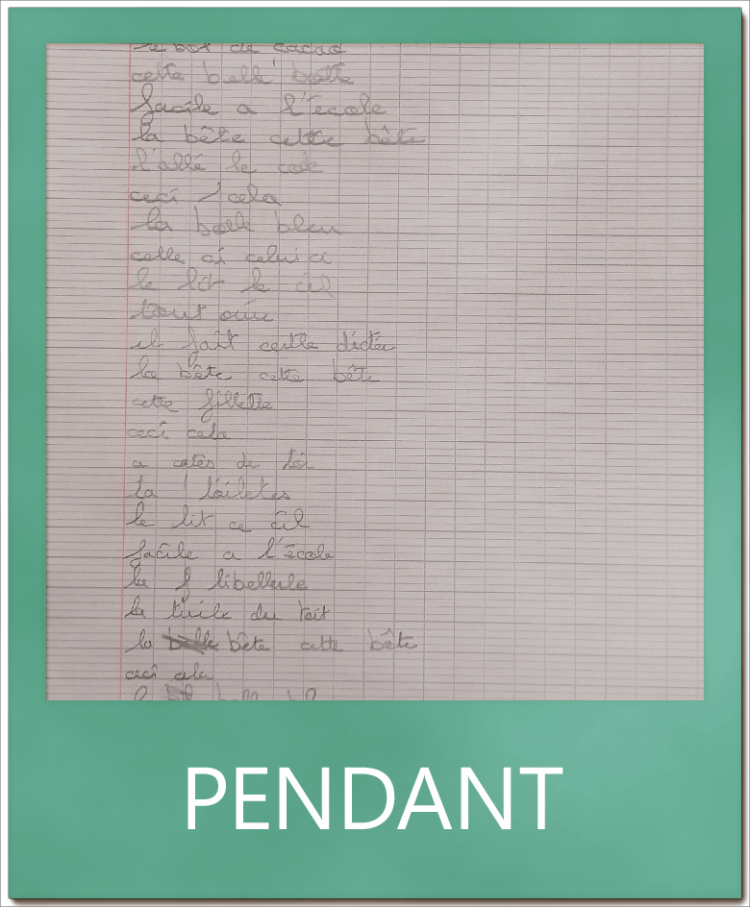 le box de cacao
cette belle botte
facile a l'école
la bête cette bête
l'allé le
ceci cela
la balle bleu
celle ci celui ci
le lit le cil
tout ouïe
il fait cette dictée
la bête cette bête
cette fillette
ceci cela
a cotés de toi
la
le lit ce cil
facile a l'école
la libellule
la tuile du toit
la bête cette bête
ceci cela
PENDANT